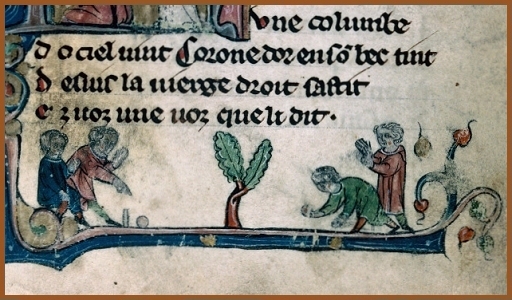 Vne columbe
d o ciel uint Corone dor en sõ bec tint
d esius la uierge droit sastit
e z uoz une uoz que li dit.